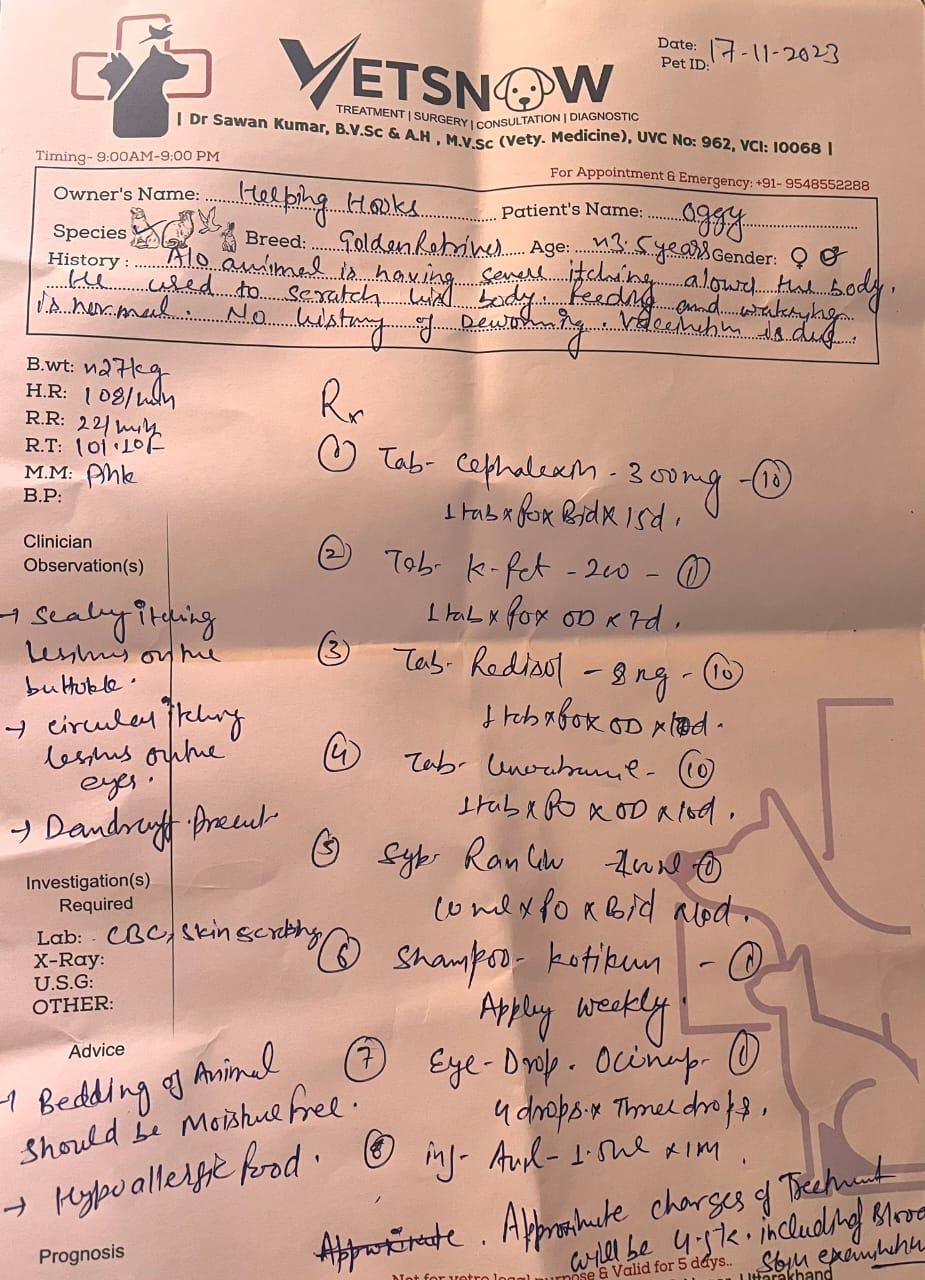 Date: 17-11-2023
Pet ID:
VETSNOW
TREATMENT | SURGERY | CONSULTATION | DIAGNOSTIC
| Dr Sawan Kumar, B.V.Sc & A.H , M.V.Sc (Vety. Medicine), UVC No: 962, VCI: 10068 |
Timing- 9:00AM-9:00 PM
For Appointment & Emergency: +91- 9548552288
Owner's Name: Helping Hooks Patient's Name: Oggy
Species Breed: Golden Retriver Age: ~3.5years Gender: ♀ ♂
History : A/o animal is having severe itching the body.
He used to scratch body. Feeding and
is normal. No history of Deworming. is due.
B.wt: ~27kg
H.R: 108/min
R.R: 22/min
R.T: 101.10F
M.M: Pink
B.P:
Rx
① Tab- Cephalexin - 300mg - ⑩
1tab x po x Bid x 15d.
② Tab- - 200 - ①
1tab x po x OD x 7d.
③ Tab- - 8 mg - ⑩
1tab x po x OD x 10d.
④ Tab- - ⑩
1tab x PO x OD x 10d.
⑤ Syp- ①
10ml x po x Bid x 10d.
⑥ Shampoo- - ①
Apply weekly.
⑦ Eye-Drop. ①
4 drops x Three drops.
⑧ inj- - 1.5ml x 1M
Clinician
Observation(s)
→ Scaly itching
lesions on the
→ circular itching
lesions on the
eyes.
→ Dandruff. Present
Investigation(s)
Required
Lab: CBC, Skin
X-Ray:
U.S.G:
OTHER:
Advice
→ Bedding of Animal
should be Moisture free.
→ Hypoallergic food.
Prognosis
Approximate charges of Treetment
will be including Blood
& Valid for 5 days..
Uttarakhand